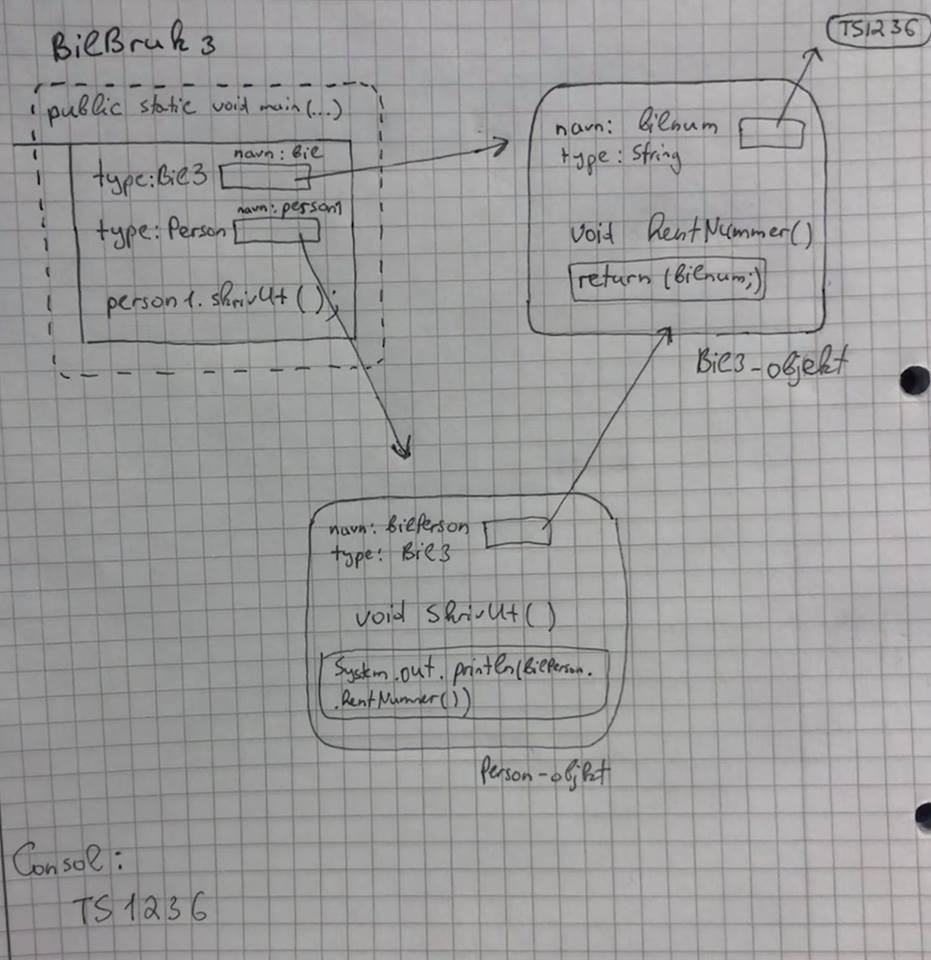 BilBruk 3
public static void main(...)
navn: Bil
type: Bil3
navn: person1
type: Person
person1.skrivUt();
TS1236
navn: Bilnum
type: String
void HentNummer()
return (Bilnum;)
Bil3-objekt
navn: BilPerson
type: Bil3
void SkrivUt()
System.out.println(BilPerson.
.HentNummer())
Person-objkt
Consol:
TS1236